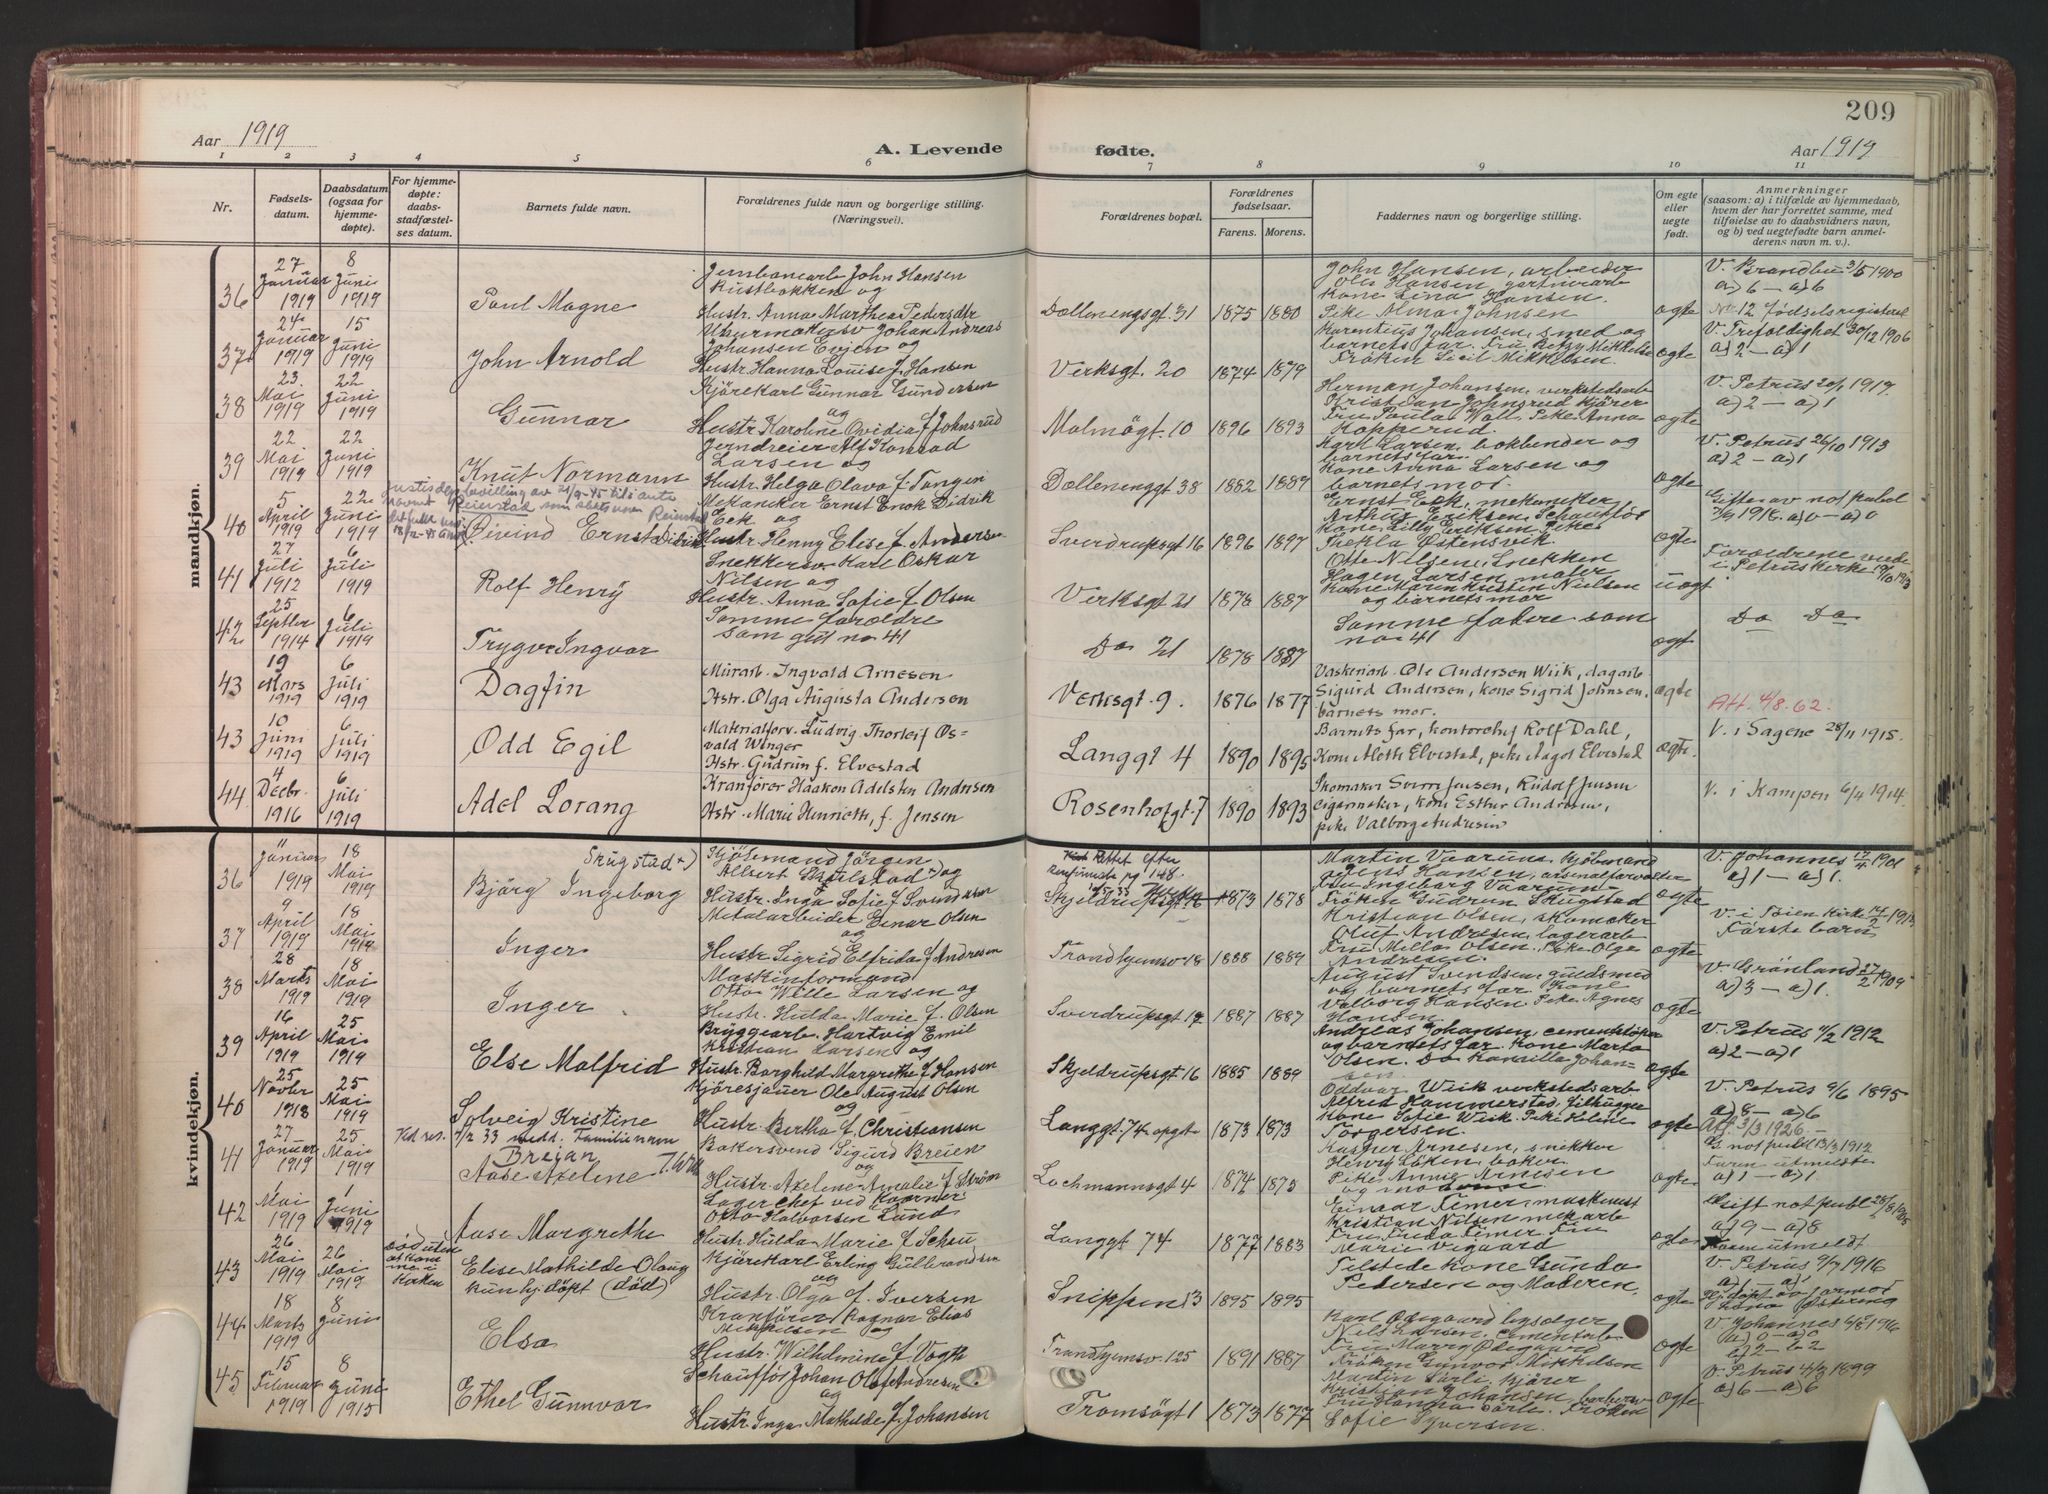 Aar 1919
A. Levende
fødte.
209
Aar 1919
1 2 3 4 5 6 7 8 9 10 11
Nr.
Fødsels-
datum.
Daabsdatum
(ogsaa for
hjemme-
døpte).
For hjemme-
døpte:
daabs-
stadfæstel-
ses datum.
Barnets fulde navn.
Forældrenes fulde navn og borgerlige stilling.
(Næringsvei).
Forældrenes bopæl.
Forældrenes
fødselsaar.
Farens. Morens.
Faddernes navn og borgerlige stilling.
Om egte
eller
uegte
født.
Anmerkninger
(saasom: a) i tilfælde av hjemmedaab,
hvem der har forrettet samme, med
tilføielse av to daabsvidners navn,
og b) ved uegtefødte barn anmel-
derens navn m. v.).
mandkjøn.
36
27 Januar 1919
8 Juni 1919
Paul Magne
Jernbanearb John Hansen
Rustbakken og
Hustr. Anna Marthea Pedersdtr
Dællenengsgt. 31
1875 1880
John Hansen, arbeider
Ole Hansen, gartnerarb
Kone Lina Hansen.
Pike Alma Johnsen
ægte
V. Brandbu 3/5 1900
a)6 – a)6
No 12 fødselsregisteret
37
24 Januar 1919
15 Juni 1919
John Arnold
Uhrmakersv Johan Andreas
Johansen Evjen og
Hustr. Hanna Louise f. Hansen
Verksgt. 20
1874 1879
Karentius Johansen, smed og
barnets far. Fru Betzy Mikkelse
Frøken Sicil Mikkelsen
ægte
V. Trefoldighet 30/12 1906
a)2 – a)1
38
23. Mai 1919
22 Juni 1919
Gunnar
Kjørekarl Gunnar Gundersen
og
Hustr Karoline Ovidia f. Johnsrud
Malmøgt. 10
1896 1893
Herman Johansen, verkstedsarb
Kristian Johnsrud kjører
Fru Paula Wall. Pike Anna
Kopperud.
ægte
V. Petrus 20/1 1917
a)2 – a)1
39
22. Mai 1919
22 Juni 1919
Knut Normann
Jerndreier Alf Konrad
Larsen og
Hustr. Helga Olava f. Tangen
Dællenenggt 38
1882 1889
Karl Larsen, bokbinder og
barnets far.
Kone Anna Larsen og
barnets mor.
ægte
V. Petrus 26/10 1913
a)2 – a)1
40
5 April 1919
22 Juni 1919
Øivind Ernst Didrik
Mekaniker Ernst Enok Didrik
Eek og
Hustr. Henny Elise f. Andersen
Sverdrupsgt 16
1896 1897
Ernst Eek, mekaniker,
Arthur Eriksen, Schaufför
Kone Lilly Eriksen, Pike
Thekla Østensvik.
ægte
Gifte av not publ
7/9 1918. a)0 – a)0
41
27 Juli 1912
6 Juli 1919
Rolf Henry
Snekkersv. Karl Oskar
Nilsen og
Hustr. Anna Sofie f. Olsen
Verksgt 21
1878 1887
Otto Nilsen, Snekker
Hagen Larsen maler
Kone Maren Kristin Nielsen
og barnets mor
uægt
Forældrene viede
i Petruskirke 19/10 1913
42
25 Septber 1914
6 Juli 1919
Trygve Ingvar
Samme forældre
som gut no 41
Do 21
1878 1887
Samme faddere som
no 41
ægte
Do Do
43
19 Mars 1919
6 Juli 1919
Dagfin
Murarb. Ingvald Arnesen
Hstr. Olga Augusta Andersen
Verksgt. 9.
1876 1877
Vaskeriarb. Ole Andersen Wiik, dagarb.
Sigurd Andersen, kone Sigrid Johnsen,
barnets mor.
ægte
Att. 4/8. 62.
43
10 Juni 1919
6 Juli 1919
Odd Egil
Materialforv. Ludvig Thorleif Os-
vald Winger
Hstr. Gudrun f. Elvestad
Langgt 4
1890 1895
Barnets far, kontorchef Rolf Dahl,
Kone Aleth Elvestad, pike Aagot Elvestad
ægte.
V. i Sagene 28/11 1915.
44
4 Decbr. 1916
6 Juli 1919
Adel Lorang
Kranfører Haakon Adelsten Andersen
Hstr. Marie Henriette, f. Jensen
Rosenhofgt. 7
1890 1893
Skomaker Sverre Jensen, Rudolf Jensen
cigarmaker, kone Esther Andersen,
pike Valborg Andersen
V. i Kampen 6/4 1914.
kvindekjøn.
36
11 Januar 1919
18 Mai 1919
Skugstad
Bjørg Ingeborg
Kjøbmand Jørgen
Albert Skulstad og
Hustr. Inga Sofie f. Svendsen
Rettet efter
Skjeldrupsgt 16
1873 1878
Martin Vaarum, kjøbmand
Jens Hansen, arsenalforvalter
Fru Ingeborg Vaarum
Frøken Gudrun Skugstad
ægte
V. Johannes 1901
a)1 – a)1.
37
9 April 1919
18 Mai 1919
Inger
Metalarbeider Einar Olsen
og
Hustr Sigrid Elfrida f. Andresen
Trondhjemsv 18
1888 1889
Kristian Olsen, skomaker
Oluf Andresen, lagerarb
Fru Milla Olsen. Pike Olga
Andresen.
ægte
V. i Paien Kirke
Første barn
38
28 Marts 1919
18 Mai 1919
Inger
Maskinformand
Otto Wille Larsen og
Hustr. Hulda Marie f. Olsen
Sverdrupsgt 17
1887 1887
August Svendsen, guldsmed
og barnets far. Kone
Valborg Hansen. Pike Agnes
Hansen
ægte
V. Grønland 27/2 1909
a)3 – a)1.
39
16 April 1919
25 Mai 1919
Else Malfrid
Bryggearb. Hartvig Emil
Kristian Larsen og
Hustr. Borghild Margrethe f. Hansen
Skjeldrupsgt 16
1885 1889
Andreas Johansen, cementstøper
og barnets far. Kone Marta
Olsen. Do Kansilla Johan-
sen.
ægte
V. Petrus 4/2 1912
a)2 – a)1
40
25 Novbr 1918
25 Mai 1919
Solveig Kristine
Kjøresjauer Ole August Olsen
og
Hustr. Bertha f. Christiansen
Langgt. 74 opg
1873 1873
Oddvar Wiik verkstedsarb.
Alfred Hammerstad, Filhugger
Kone Sofie Wiik. Pike Helene
Torgersen.
ægte
V. Petrus 6/6 1895
a)8 – a)6
Att. 3/3 1926.
41
27 Januar 1919
25 Mai 1919
Ved res. 7/2 33 medd. Familienavn
Breian
Aase Axelene
Bakersvend Sigurd Breien
og
Hustr. Axelene Amalie f. Strøm
Lochmannsgt 4
1874 1873
Kasper Arnesen, snekker
Henry Löken, baker
Pike Annie Arnesen
og moderen
ægte
Gs not publ 13/3 1912
Faren utmeldt
a)1 – a)1
42
1 Mai 1919
1 Juni 1919
Aase Margrethe
Lagerchef ved Kværner
Otto Halvorsen Lund
Hustr. Hulda Marie f. Schau
Langgt 74
1877 1883
Einar Femer, maskinist
Kristian Nilsen mek arb
Fru Frida Femer Fru
Marie Vigaard
ægte
Gift not publ 28/8 1905
a)9 – a)8
Faren utmeldt
43
26 Mai 1919
26 Mai 1919
død uten
at komme i
Kirken
Elise Mathilde Olaug
kun hj. døpt (død)
Kjørekarl Erling Gulbrandsen
og
Hustr. Olga f. Iversen
Snippen 13
1895 1895
Tilstede Kone Gunda
Pedersen og Moderen.
ægte
V. Petrus 9/7 1916
a)1 – a)1
Hj. døpt av jormor
44
18 Marts 1919
8 Juni
Elsa
Kranfører Ragnar Elias
Mikkelsen og
Hustr. Wilhelmine f. Vogth
Trondhjemsv. 125
1891 1887
Karl Ødegaard bysælger
Nils Larsen, cementarb
Fru Marry Ødegaard
Frøken Gunvor Mikkelsen
ægte
V. Johannes 6/8 1916
a)0 – a)0
b)2 – b2
45
15 Februar 1919
8 Juni 1915
Ethel Gunnvor
Schaufför Johan Olaf Andresen
og
Hustr Inga Mathilde f. Johansen
Tromsøgt 1
1873 1877
Martin Særli, kjører
Kristian Johansen, barbersv
Sofie Syversen.
ægte
V. Petrus 4/3 1899
a)6 – a)6